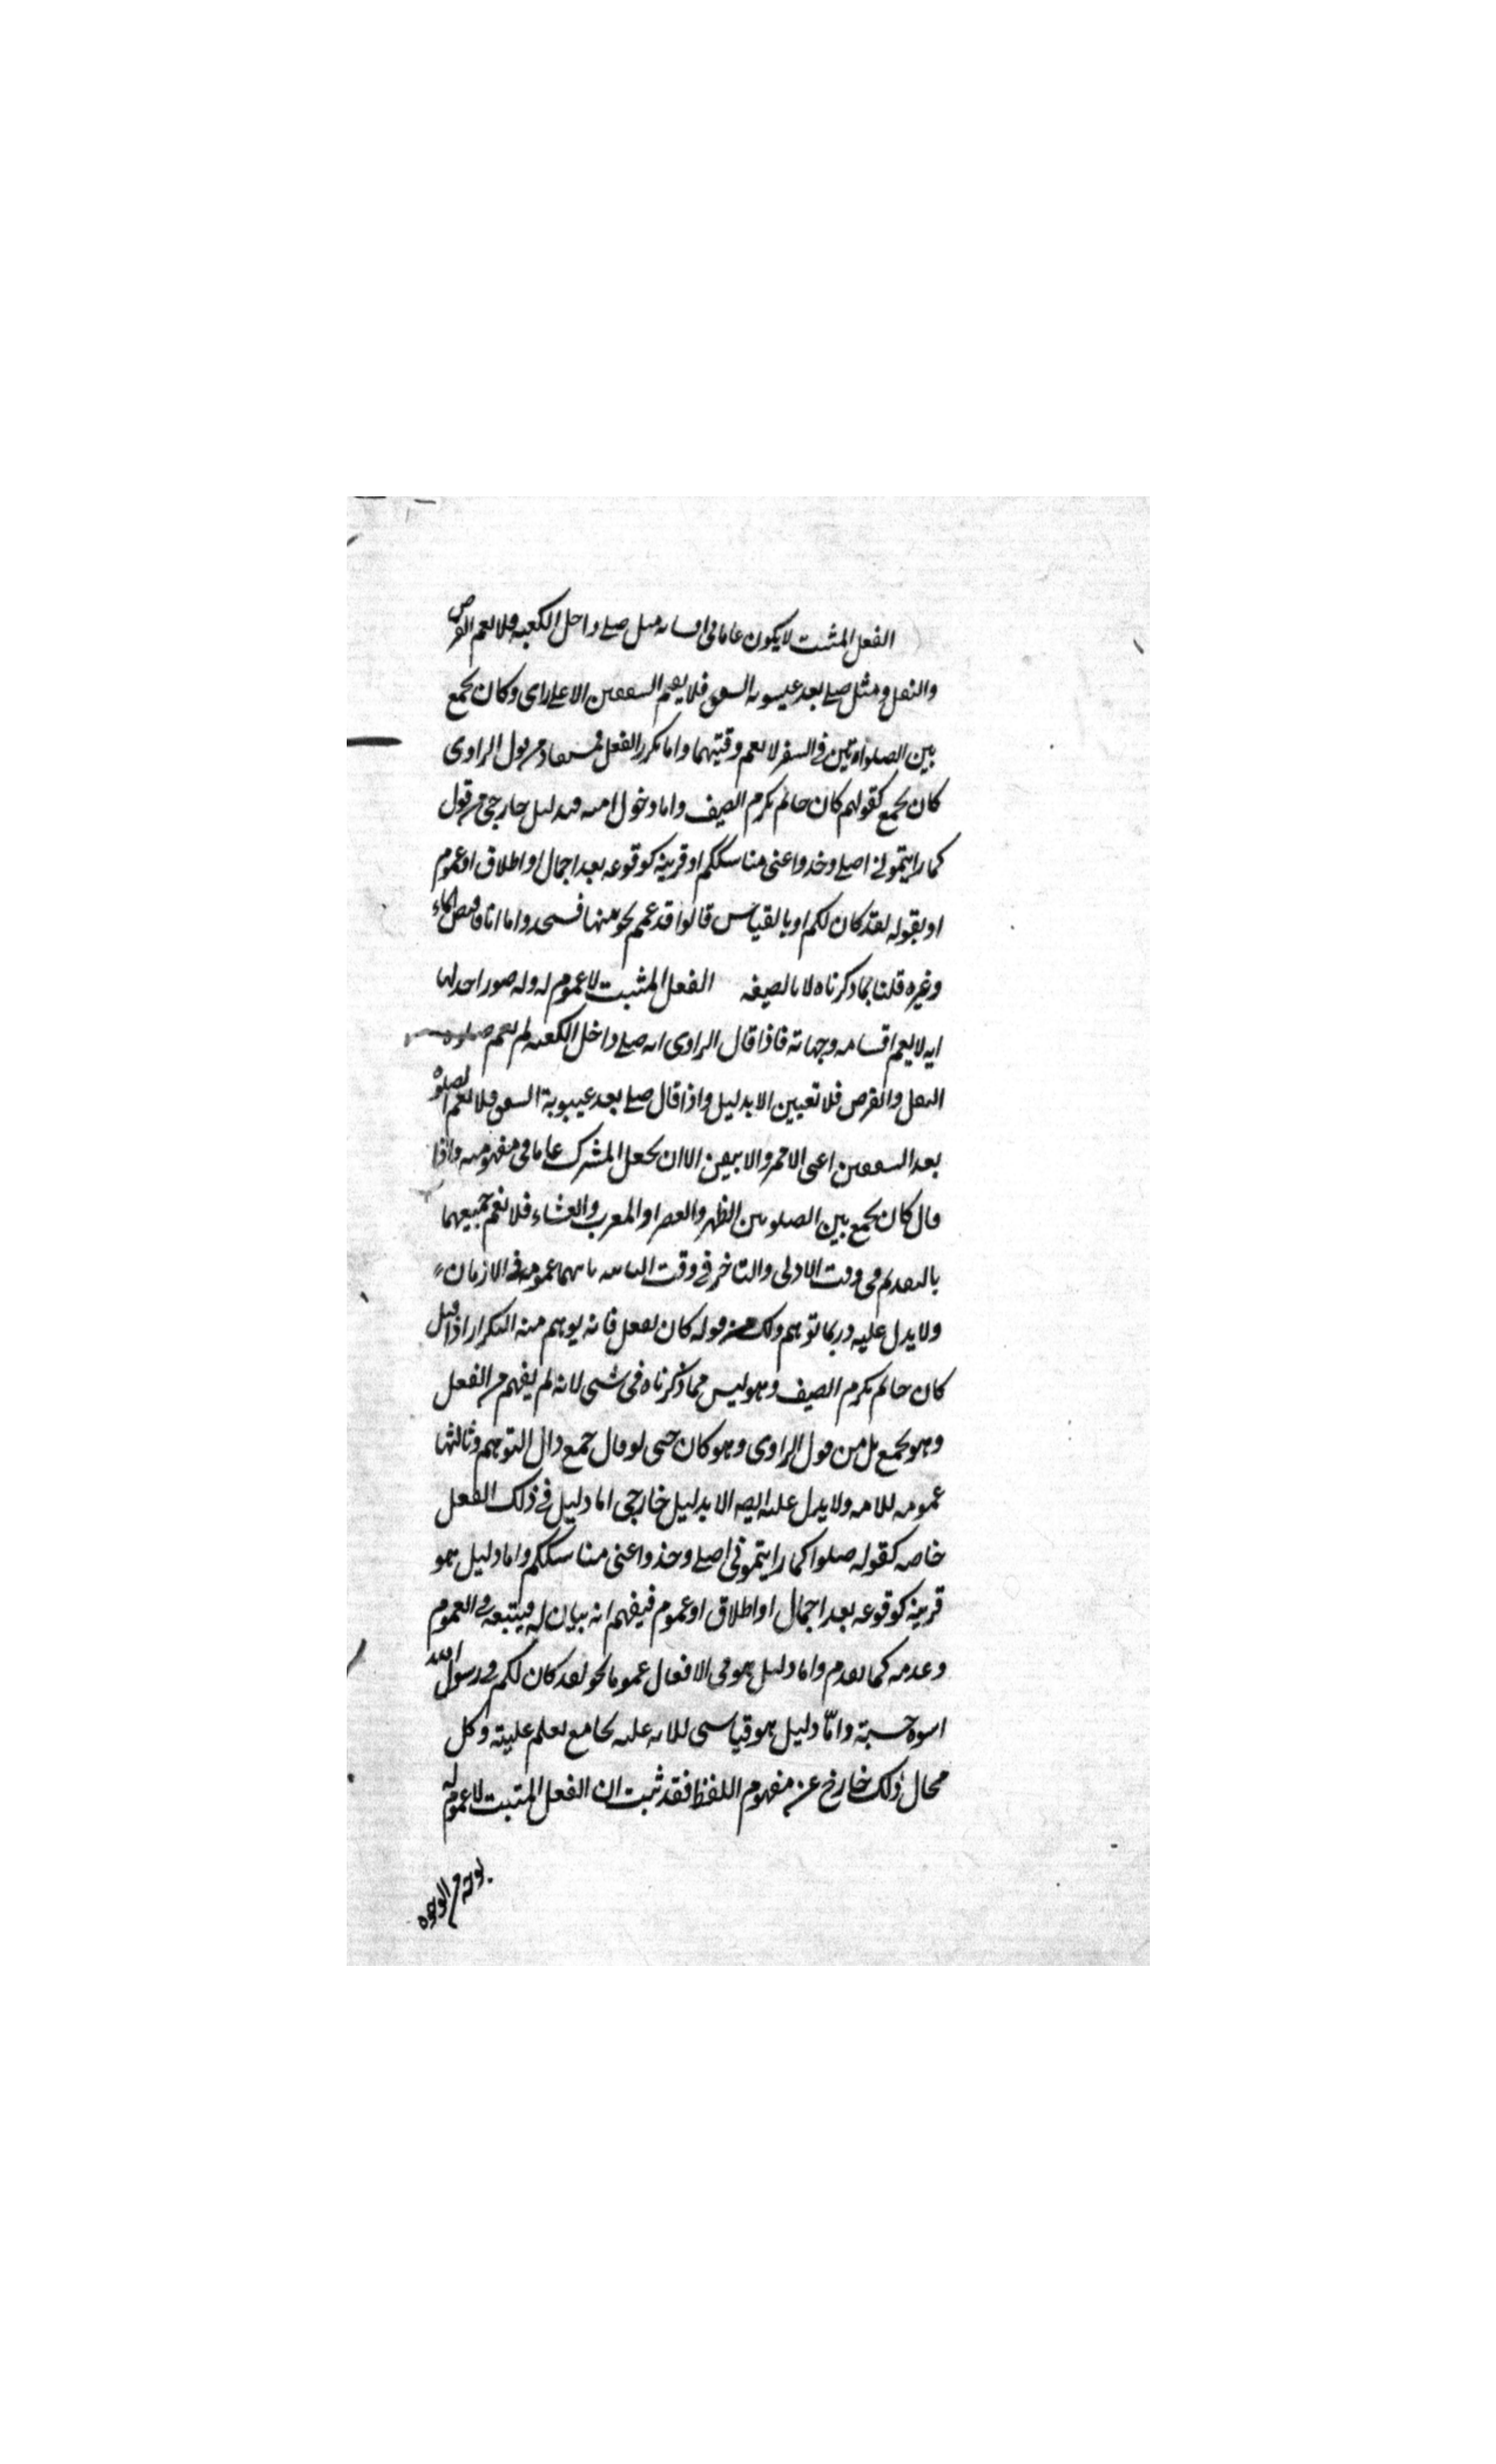 الفعل المثبت لا يكون عاما فى اقسامه مثل صلى داخل الكعبه فلا يعم الفرض
والنفل ومثل صلى بعد غيبوبه الشفق فلا يعم الشفقين الا على راى وكان يجمع
بين الصلواتين فى السفر لا يعم وقتيهما واما تكرر الفعل فمستفاد من قول الراوى
كان يجمع كقولهم كان حاتم يكرم الضيف واما دخول امته فبدليل خارجى من قول
كما رايتمونى اصلى وخذوا عنى مناسككم او قرينه كوقوعه بعد اجمال او اطلاق او عموم
او بقوله لقد كان لكم او بالقياس قالوا قد عمم نحو سها فسجد واما انا فافيض الماء
وغيره قلنا بما ذكرناه لا بالصيغه الفعل المثبت لا عموم له وله صور احدلها
انه لا يعم اقسامه وجهاته فاذا قال الراوى انه صلى داخل الكعبه لم يعم صلوه
النفل والفرض فلا تعيين الا بدليل واذا قال صلى بعد غيبوبة الشفق فلا يعم الصلوة
بعد الشفقين اعنى الاحمر والابيض الا ان يجعل المشترك عاما فى مفهوميه واذا
قال كان يجمع بين الصلوتين الظهر والعصر او المغرب والعشاء فلا يعم جميعهما
بالتقديم فى وقت الاولى والتاخر فى وقت الثانيه ثانيهما عمومه فى الازمان
ولا يدل عليه وربما توهم ذلك من قوله كان يفعل فانه يوهم منه التكرار اذا قيل
كان حاتم يكرم الضيف وهو ليس مما ذكرناه فى شىء لانه لم يفهم من الفعل
وهو يجمع بل من قول الراوى وهو كان حتى لو قال جمع زال التوهم وثالثها
عمومه للامه ولا يدل عليه ايضه الا بدليل خارجى اما دليل فى ذلك الفعل
خاصه كقوله صلوا كما رايتمونى اصلى وخذوا عنى مناسككم واما دليل هو
قرينه كوقوعه بعد اجمال او اطلاق او عموم فيفهم انه بيان له فيتبعه فى العموم
وعدمه كما تقدم واما دليل هو فى الافعال عموما نحو لقد كان لكم فى رسول الله
اسوه حسنة وامّا دليل هو قياس للامه عليه بجامع يعلم عليته وكل
محال ذلك خارج عن مفهوم اللفظ فقد ثبت ان الفعل المثبت لا عموم له
بوجه من الوجوه